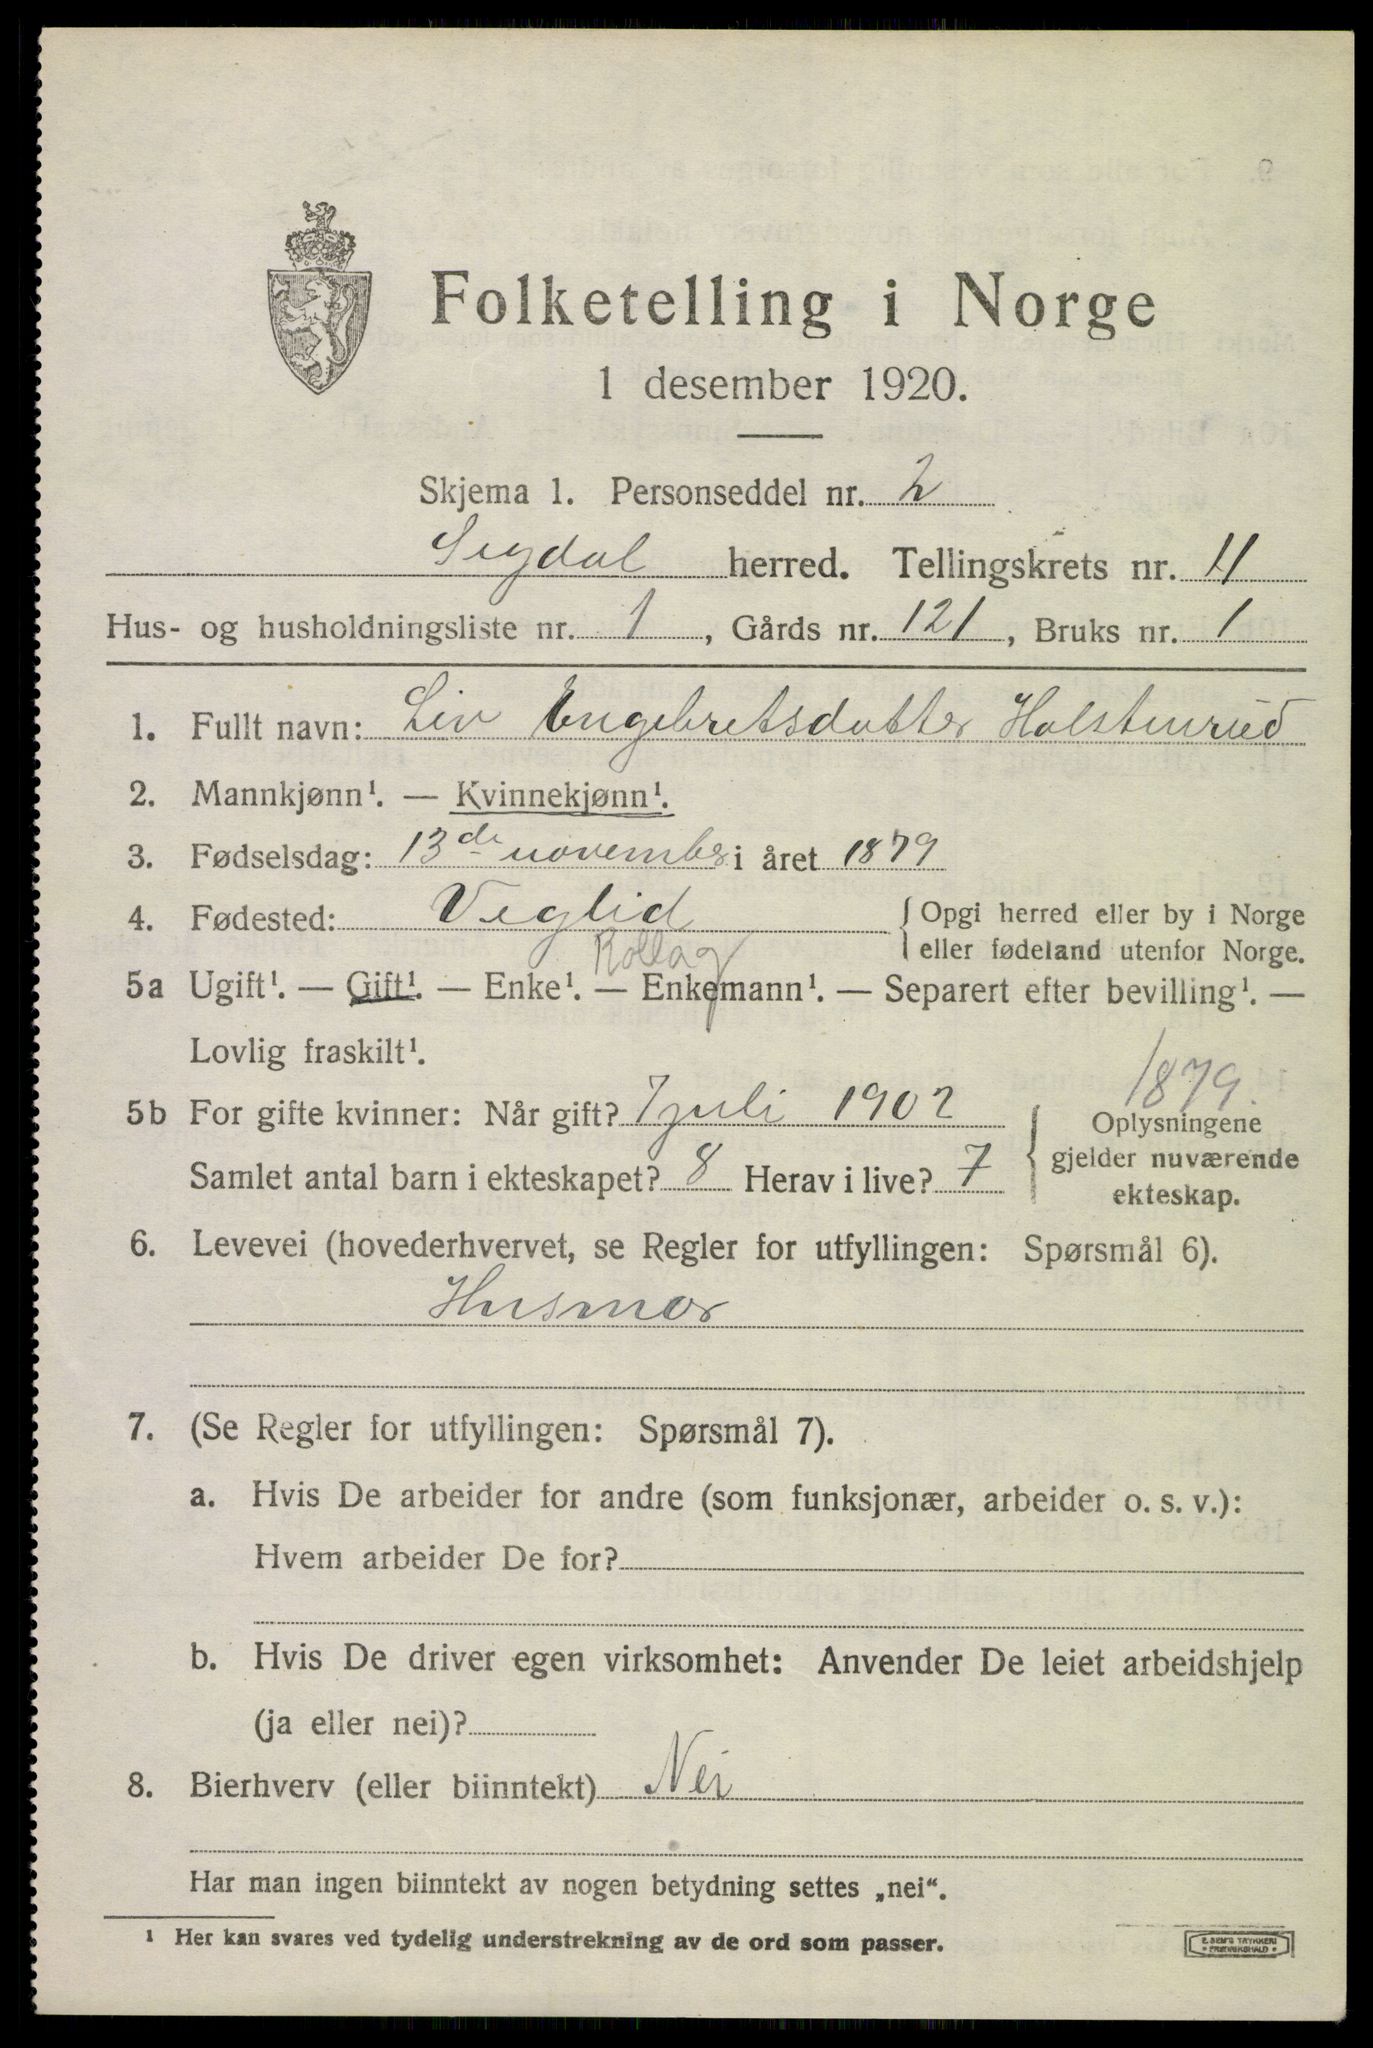 Folketelling i Norge
1 desember 1920.
Skjema 1. Personseddel nr. 2
Sigdal herred. Tellingskrets nr. 11
Hus- og husholdningsliste nr. 1, Gårds nr. 121, Bruks nr. 1
1. Fullt navn: Liv Engebretsdatter Holstenrud
2. Mannkjønn¹. — Kvinnekjønn¹.
3. Fødselsdag: 13de november i året 1879
4. Fødested: Veglid { Opgi herred eller by i Norge
eller fødeland utenfor Norge.
Rollag
5a Ugift¹. — Gift¹. — Enke¹. — Enkemann¹. — Separert efter bevilling¹. —
Lovlig fraskilt¹.
1879.
5b For gifte kvinner: Når gift? 7 juli 1902 { Oplysningene
gjelder nuværende
Samlet antal barn i ekteskapet? 8 Herav i live? 7 ekteskap.
6. Levevei (hovederhvervet, se Regler for utfyllingen: Spørsmål 6).
Husmor
7. (Se Regler for utfyllingen: Spørsmål 7).
a. Hvis De arbeider for andre (som funksjonær, arbeider o. s. v.):
Hvem arbeider De for?
b. Hvis De driver egen virksomhet: Anvender De leiet arbeidshjelp
(ja eller nei)?
8. Bierhverv (eller biinntekt) Nei
Har man ingen biinntekt av nogen betydning settes „nei".
¹ Her kan svares ved tydelig understrekning av de ord som passer.
E. SEM'S TRYKKERI
FREDRIKSHALD